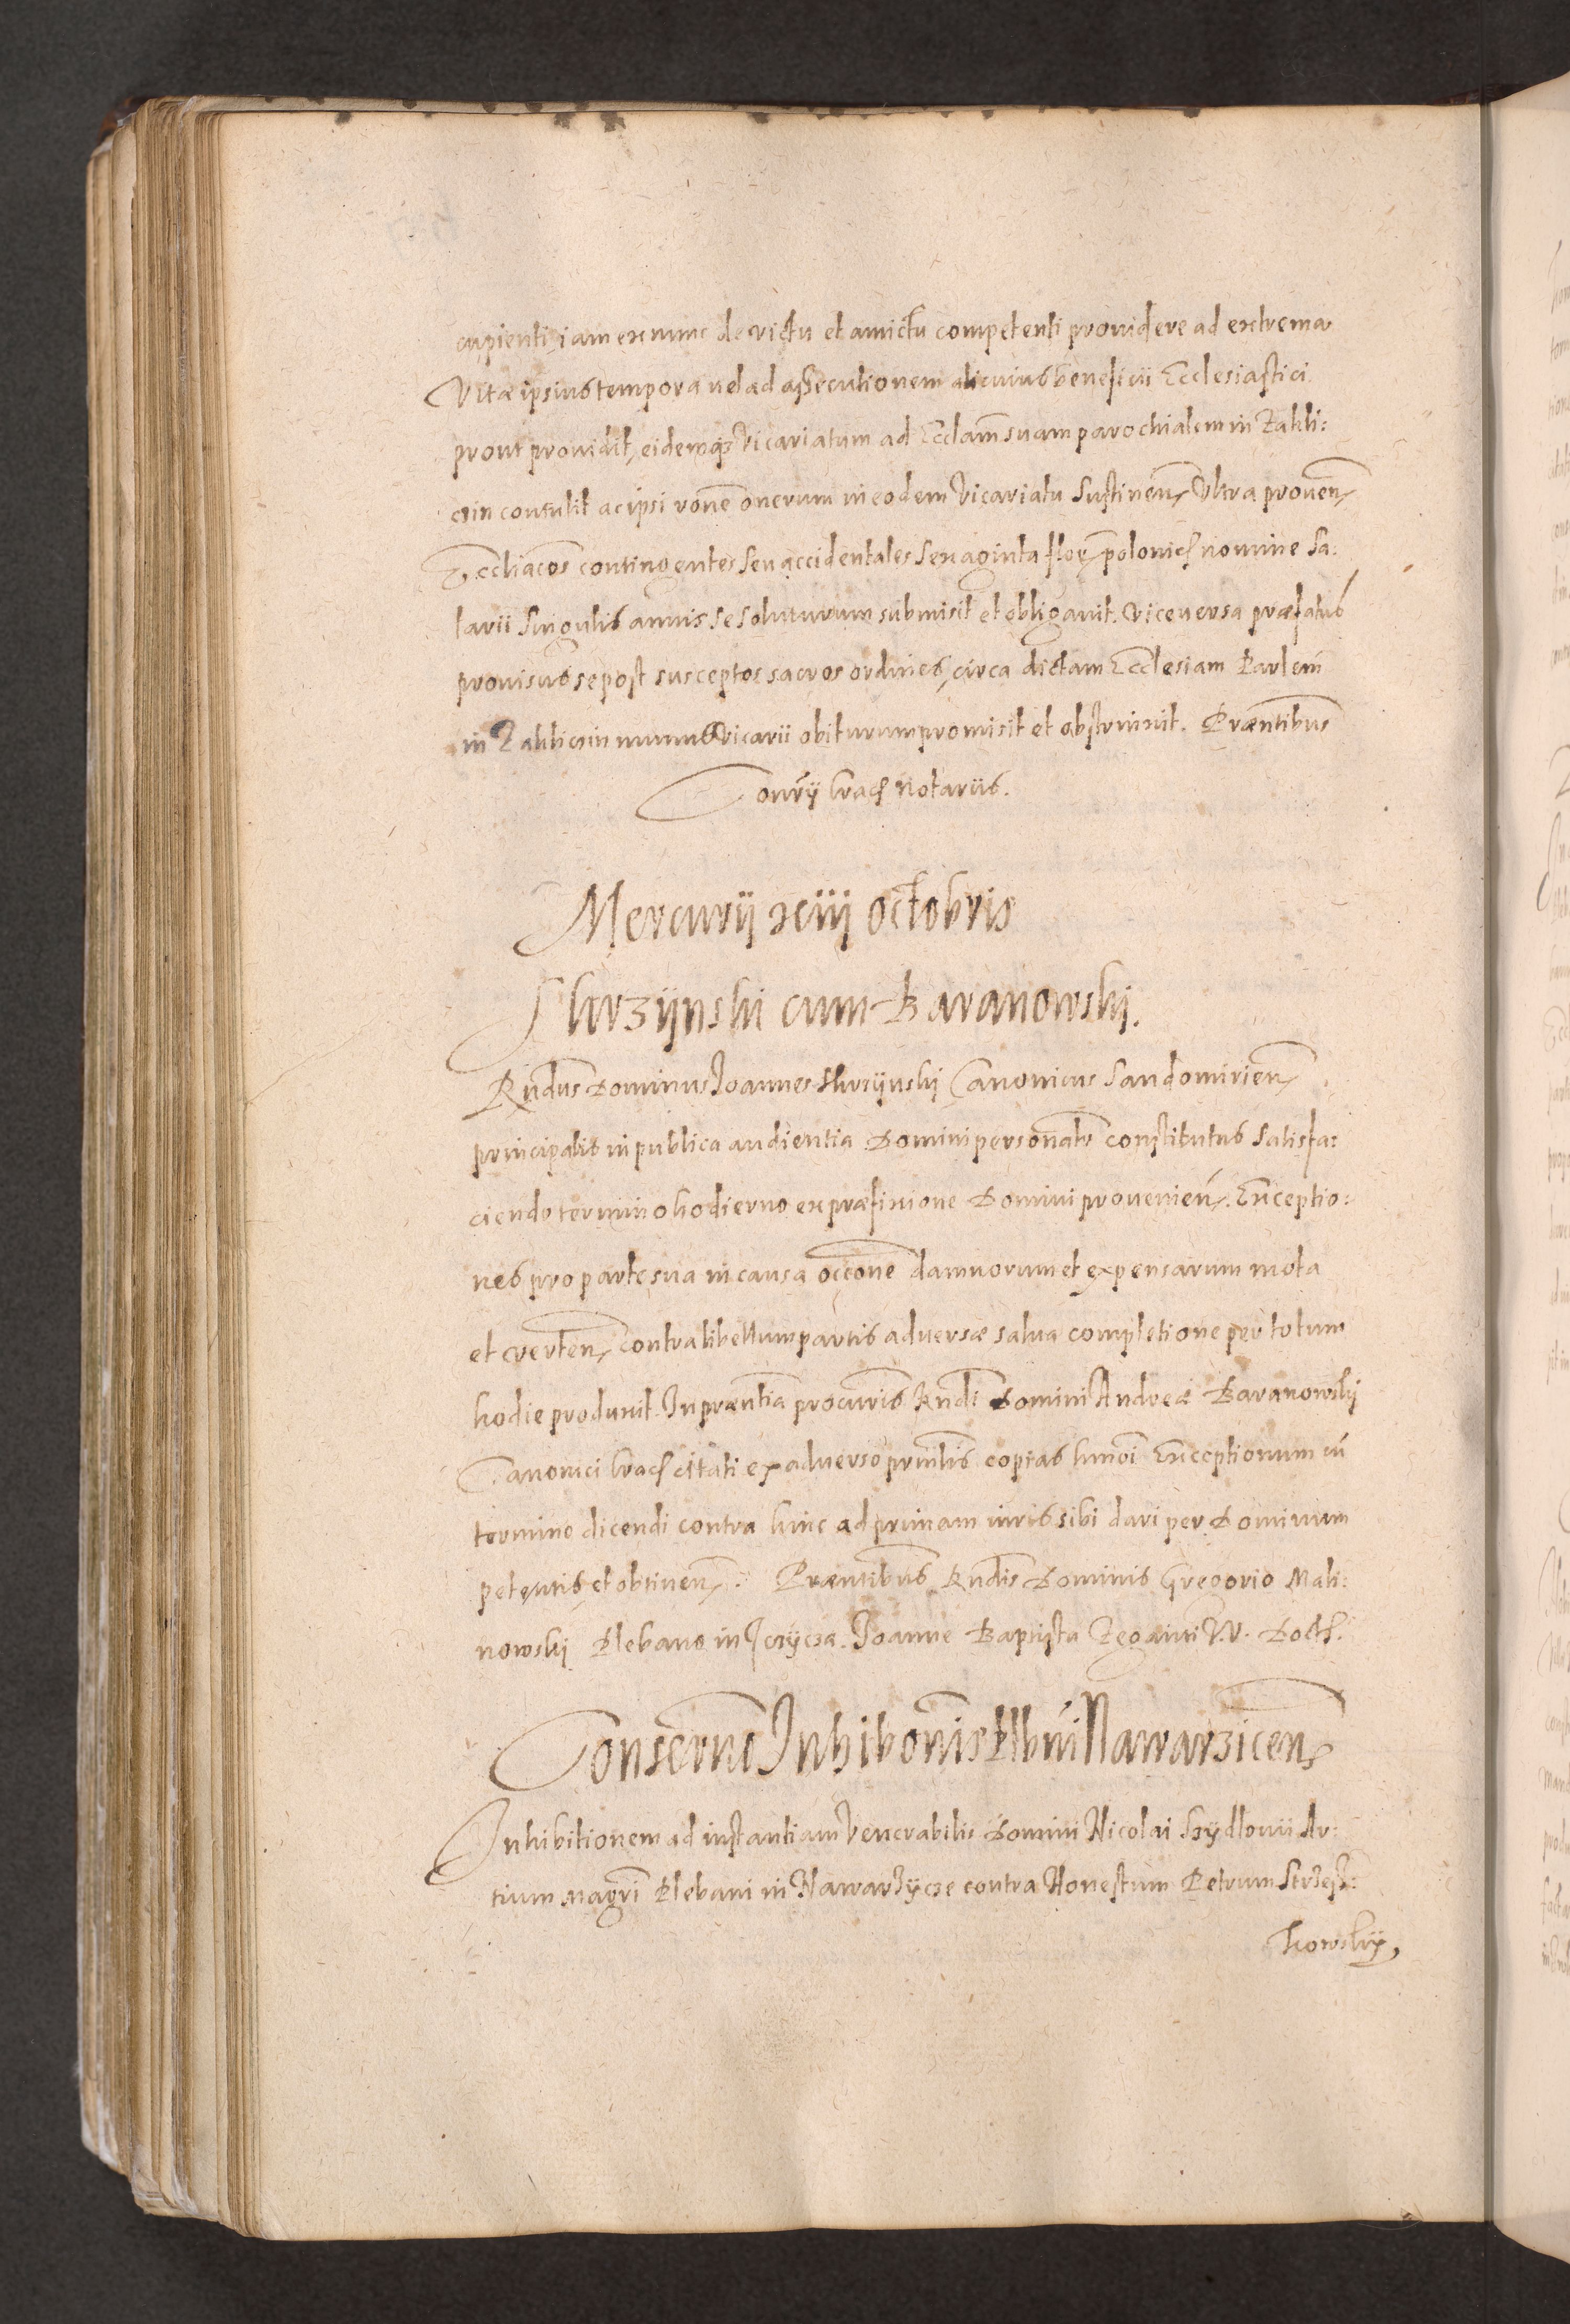 cupienti iam ex nunc de victu et amictu competenti providere ad extrema
Vitæ ipsius tempora vel ad assecutionem alicuius beneficii Ecclesiastici
prout providit, eidemq3 Vicariatum ad Ecclam̃ suam parochialem in Zakli:
czin contulit ac ipsi rone onerum in eodem Vicariatu sustinen̄ Ultra proven̄
Eccliacos contingentes seu accidentales sexaginta flor̄ polonicꝭ nomine sa:
larii singulis annis se soluturum submisit et obligavit. Viceversa præfatus
provisus se post susceptos sacros ordines, circa dictam Ecclesiam Parlem̃
in Zakliczin munus Vicarii obiturum promisit et obstrinxit. Præntibus
Conr̃ij Cracꝭ Notariis.
Mercurij xiij Octobris
Skrzijnski cum Baranowskj.
Rndus Dominus Joannes Skrzijnskj Canonicus Sandomirien̄
principalis in publica audientia Domini personalr̃ constitutus satisfa:
ciendo termino hodierno ex præfixione Domini provenien̄. Exceptio:
nes pro parte sua in causa occone damnorum et expensarum mota
et verten̄ contra libellum partis adversæ salva completione per totum
hodie produxit. In præntia procuris Rndi Domini Andreæ Baranowskj
Canonici Cracꝭ citati ex adverso prnlis copias hmoi Exceptionum cũ
termino dicendi contra hinc ad primam iuris sibi dari per Dominum
petentis et obtinen̄. Præntibus Rndis Dominis Gregorio Mali:
nowskj Plebano in Jczijcza. Joanne Baptista Zegarini V. V. Doctꝭ.
Conserũc Inhibonis Plbni Nawarzicen̄
Inhibitionem ad instantiam Venerabilis Domini Nicolai Szijdlovii Ar:
tium Magrĩ Plebani in Nawarzijcze contra Honestum Petrum Strzesz:
kowskij,